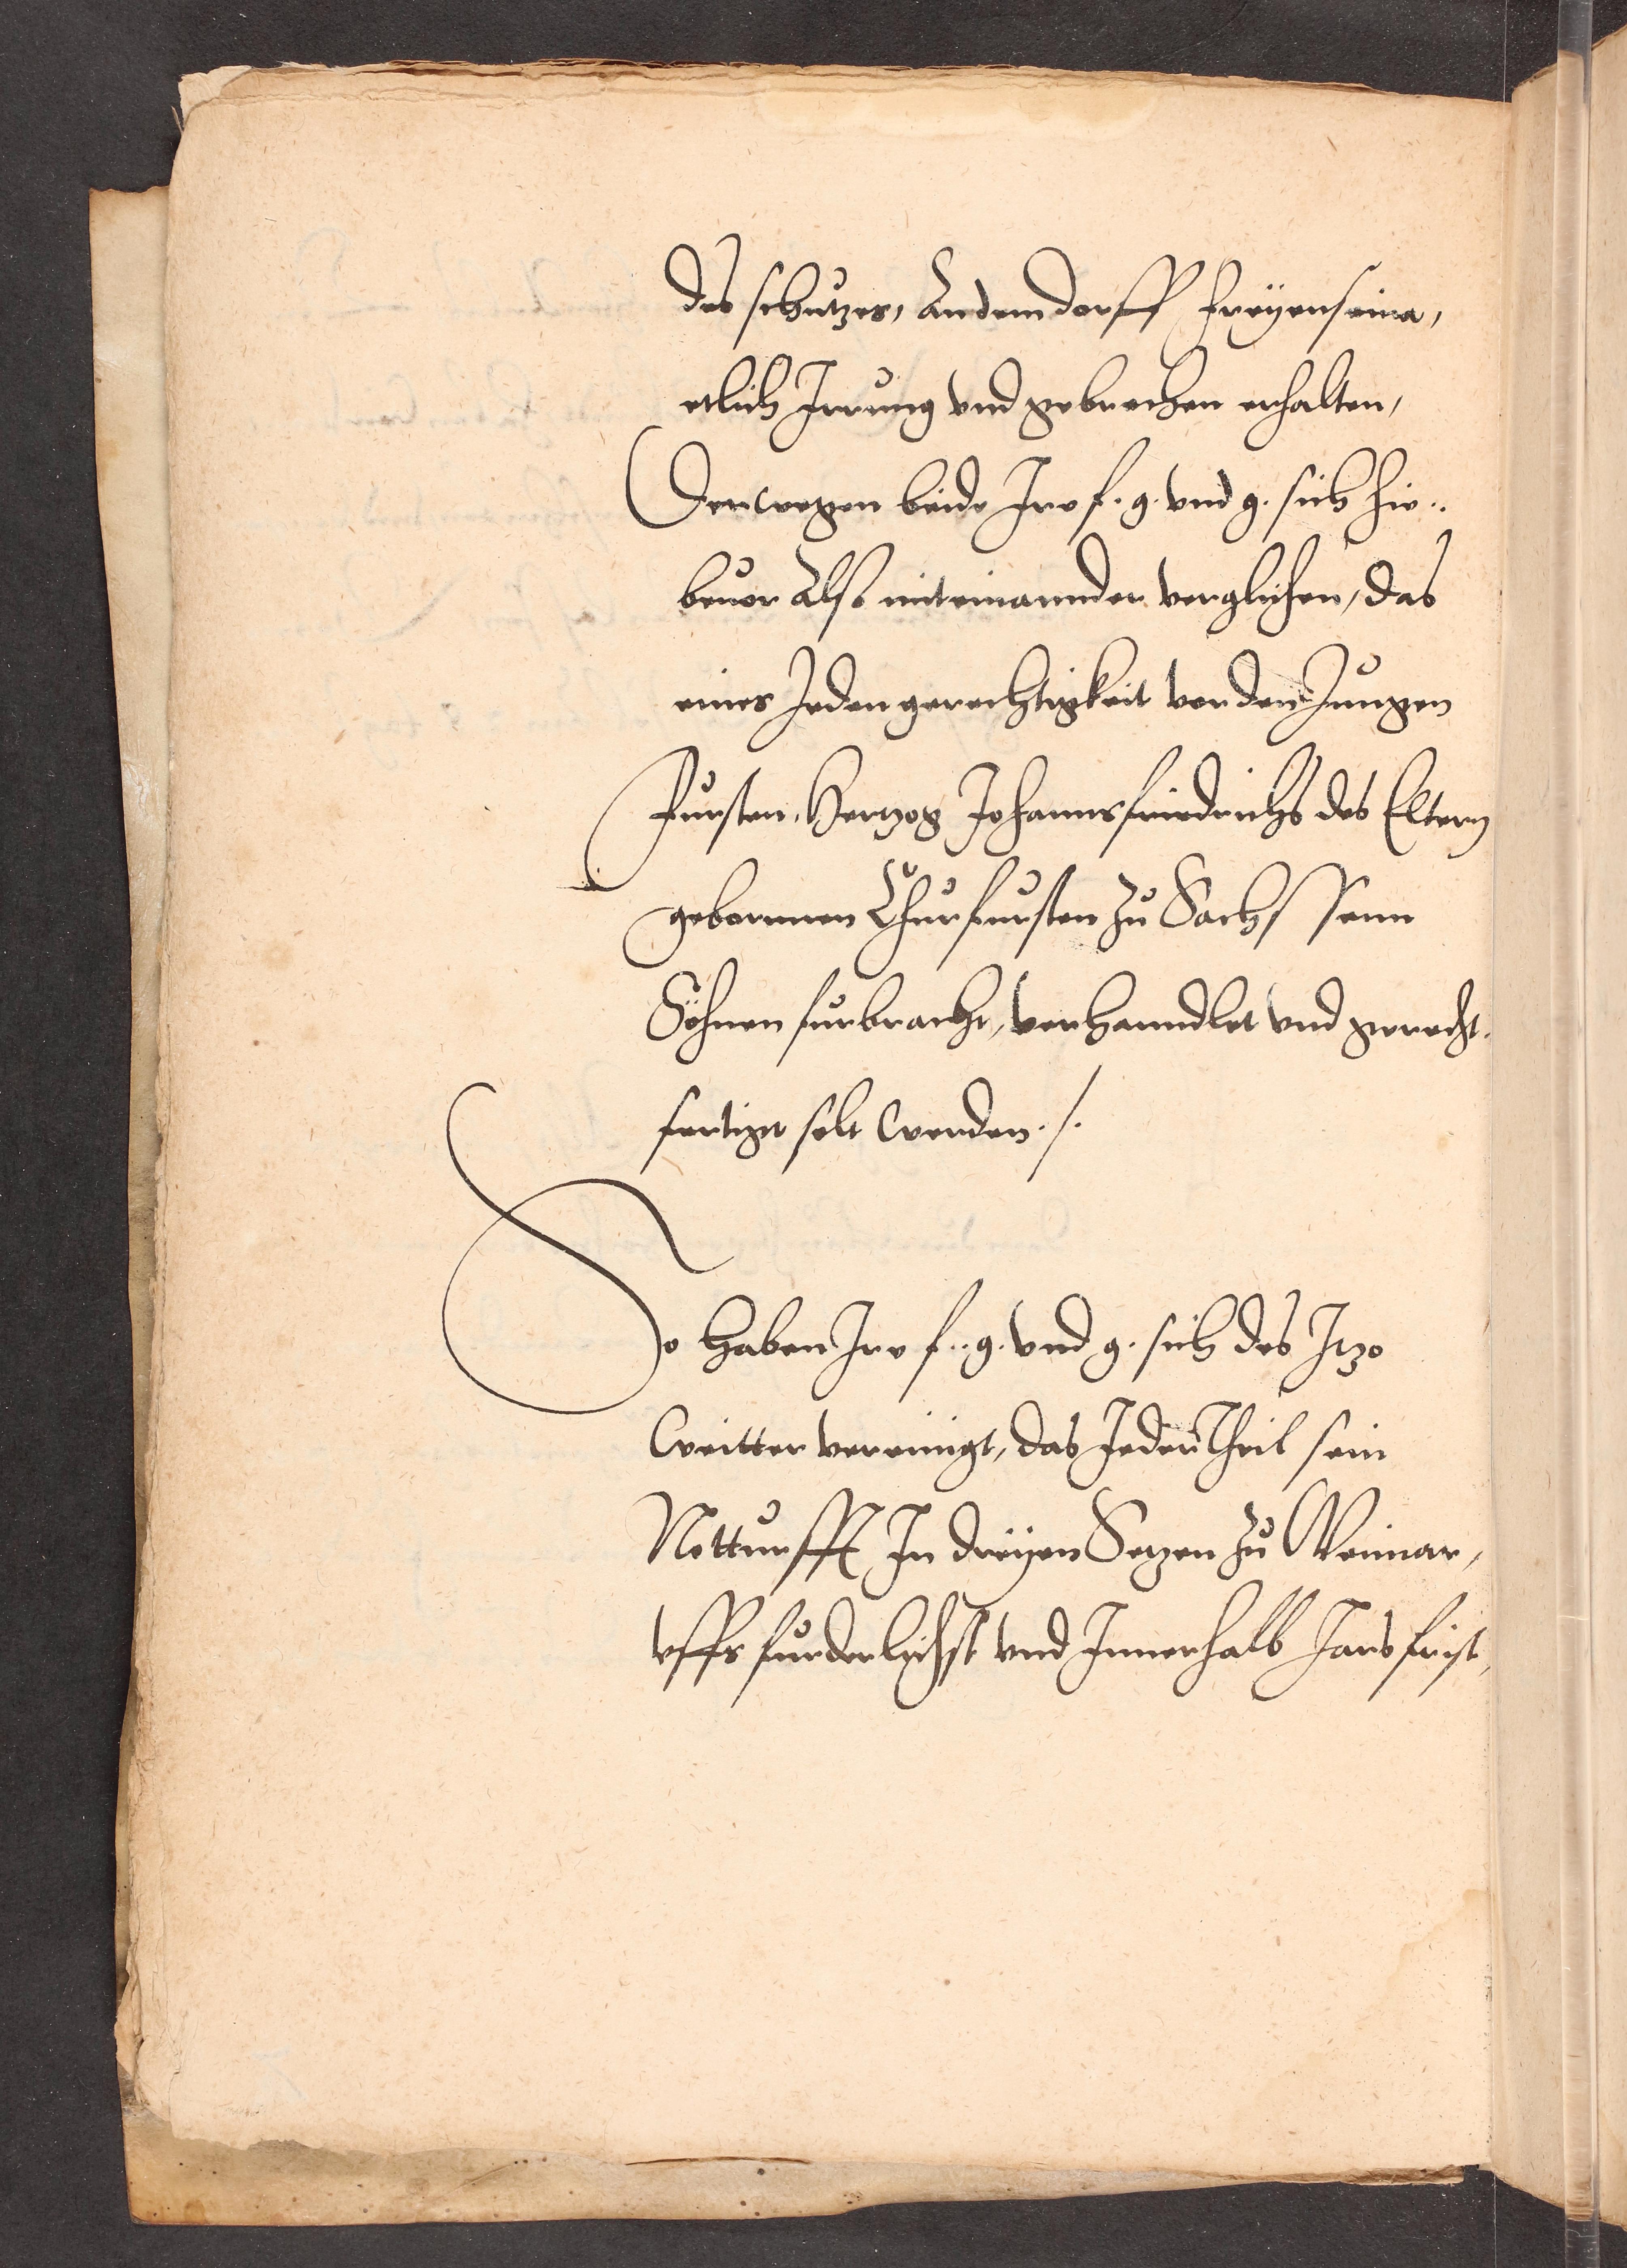 des schutzes, An dem dorff Freÿenseina,
etlich Irrung vnd gebrechen erhalten,
Derwegen beide Ire f. g. vnd g. sich hie..
beuor Also miteinannder verglichen, das
eines Jeden gerechtigkeit vor den Jungen
Fursten, Hertzog Johannsfriedrichs des Eltern
gebornnen Churfursten zu Sachssenn
Söhnen furbracht, verhanndlet vnd gerecht.
fertiget solt werden. /.
So haben Ire f. g. vnd g. sich des Itzo
weitter vereinigt, das Jeder Theil sein
Notturfft In dreÿen Setzen zu Weimar,
vffs furderlichst vnd Innerhalb Jars frist,